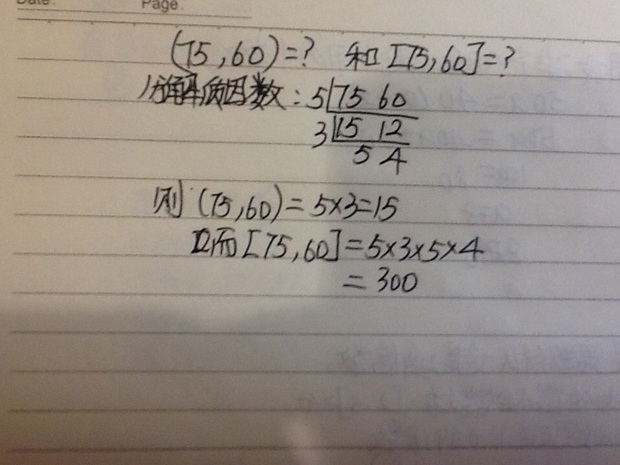 Date:
Page:
(75,60)=? 和[75,60]=?
分解质因数:5 75 60
3 15 12
5 4
则(75,60)=5×3=15
而[75,60]=5×3×5×4
=300